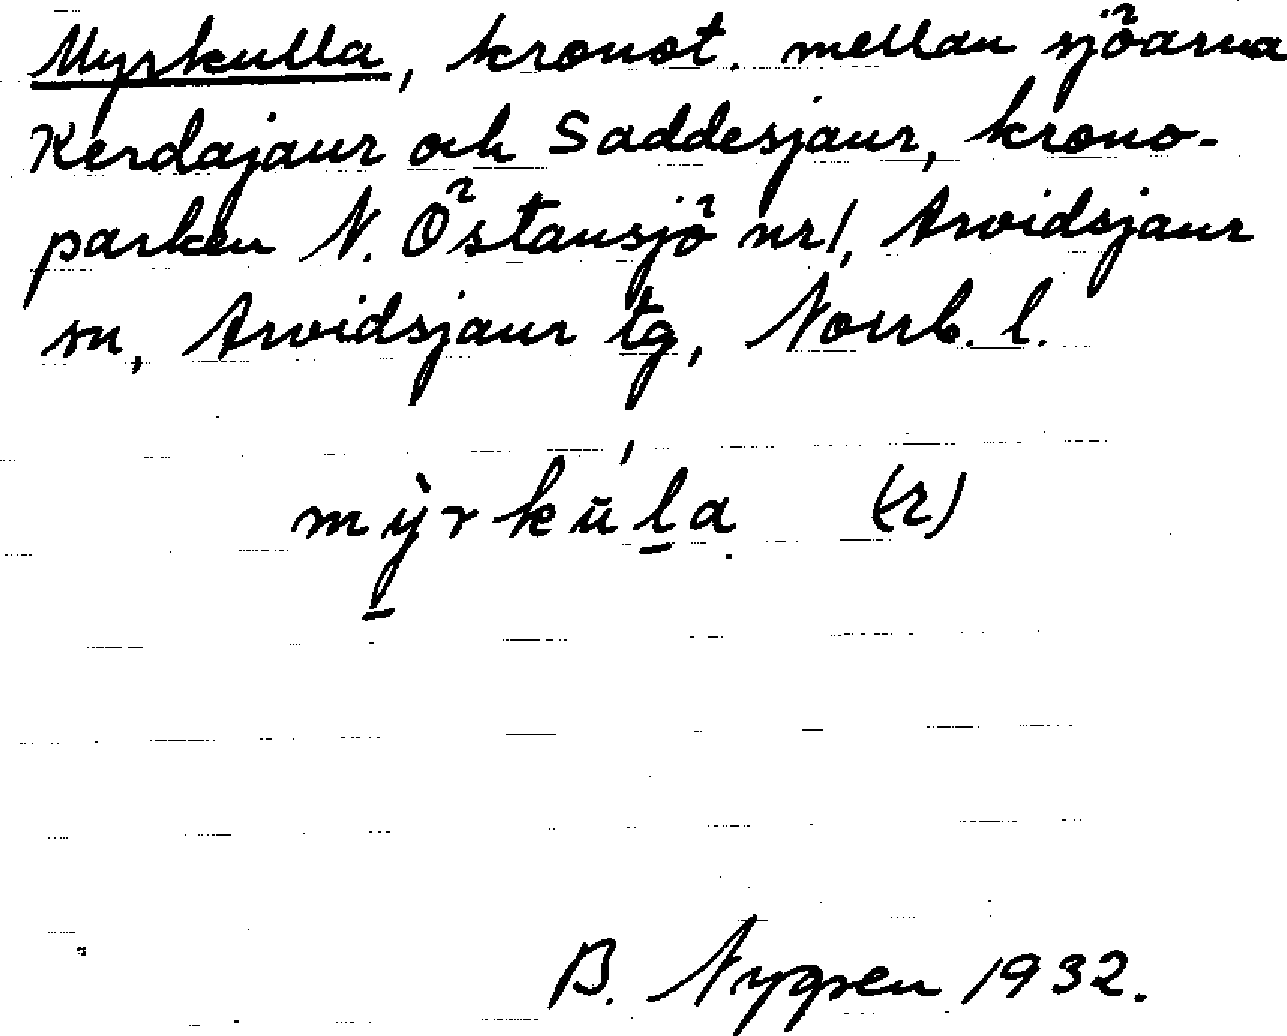 Myrkulla, kronot. mellan sjöarna
Kerdajaur och Saddesjaur, krono-
parken N. Östansjö nr 1, Arvidsjaur
sn, Arvidsjaur tg, Norrb. l.
mỳrkūla (r)
B. Nygren 1932.